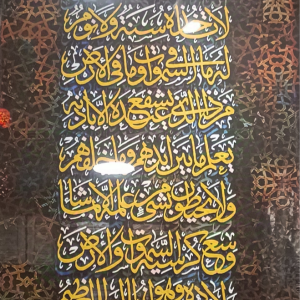 لا تأخذه سنة ولا نوم
له ما في السموات وما في الأرض
من ذا الذي يشفع عنده إلا بإذنه
يعلم ما بين أيديهم وما خلفهم
ولا يحيطون بشيء من علمه إلا بما شاء
وسع كرسيه السموات والأرض
ولا يؤده حفظهما وهو العلي العظيم